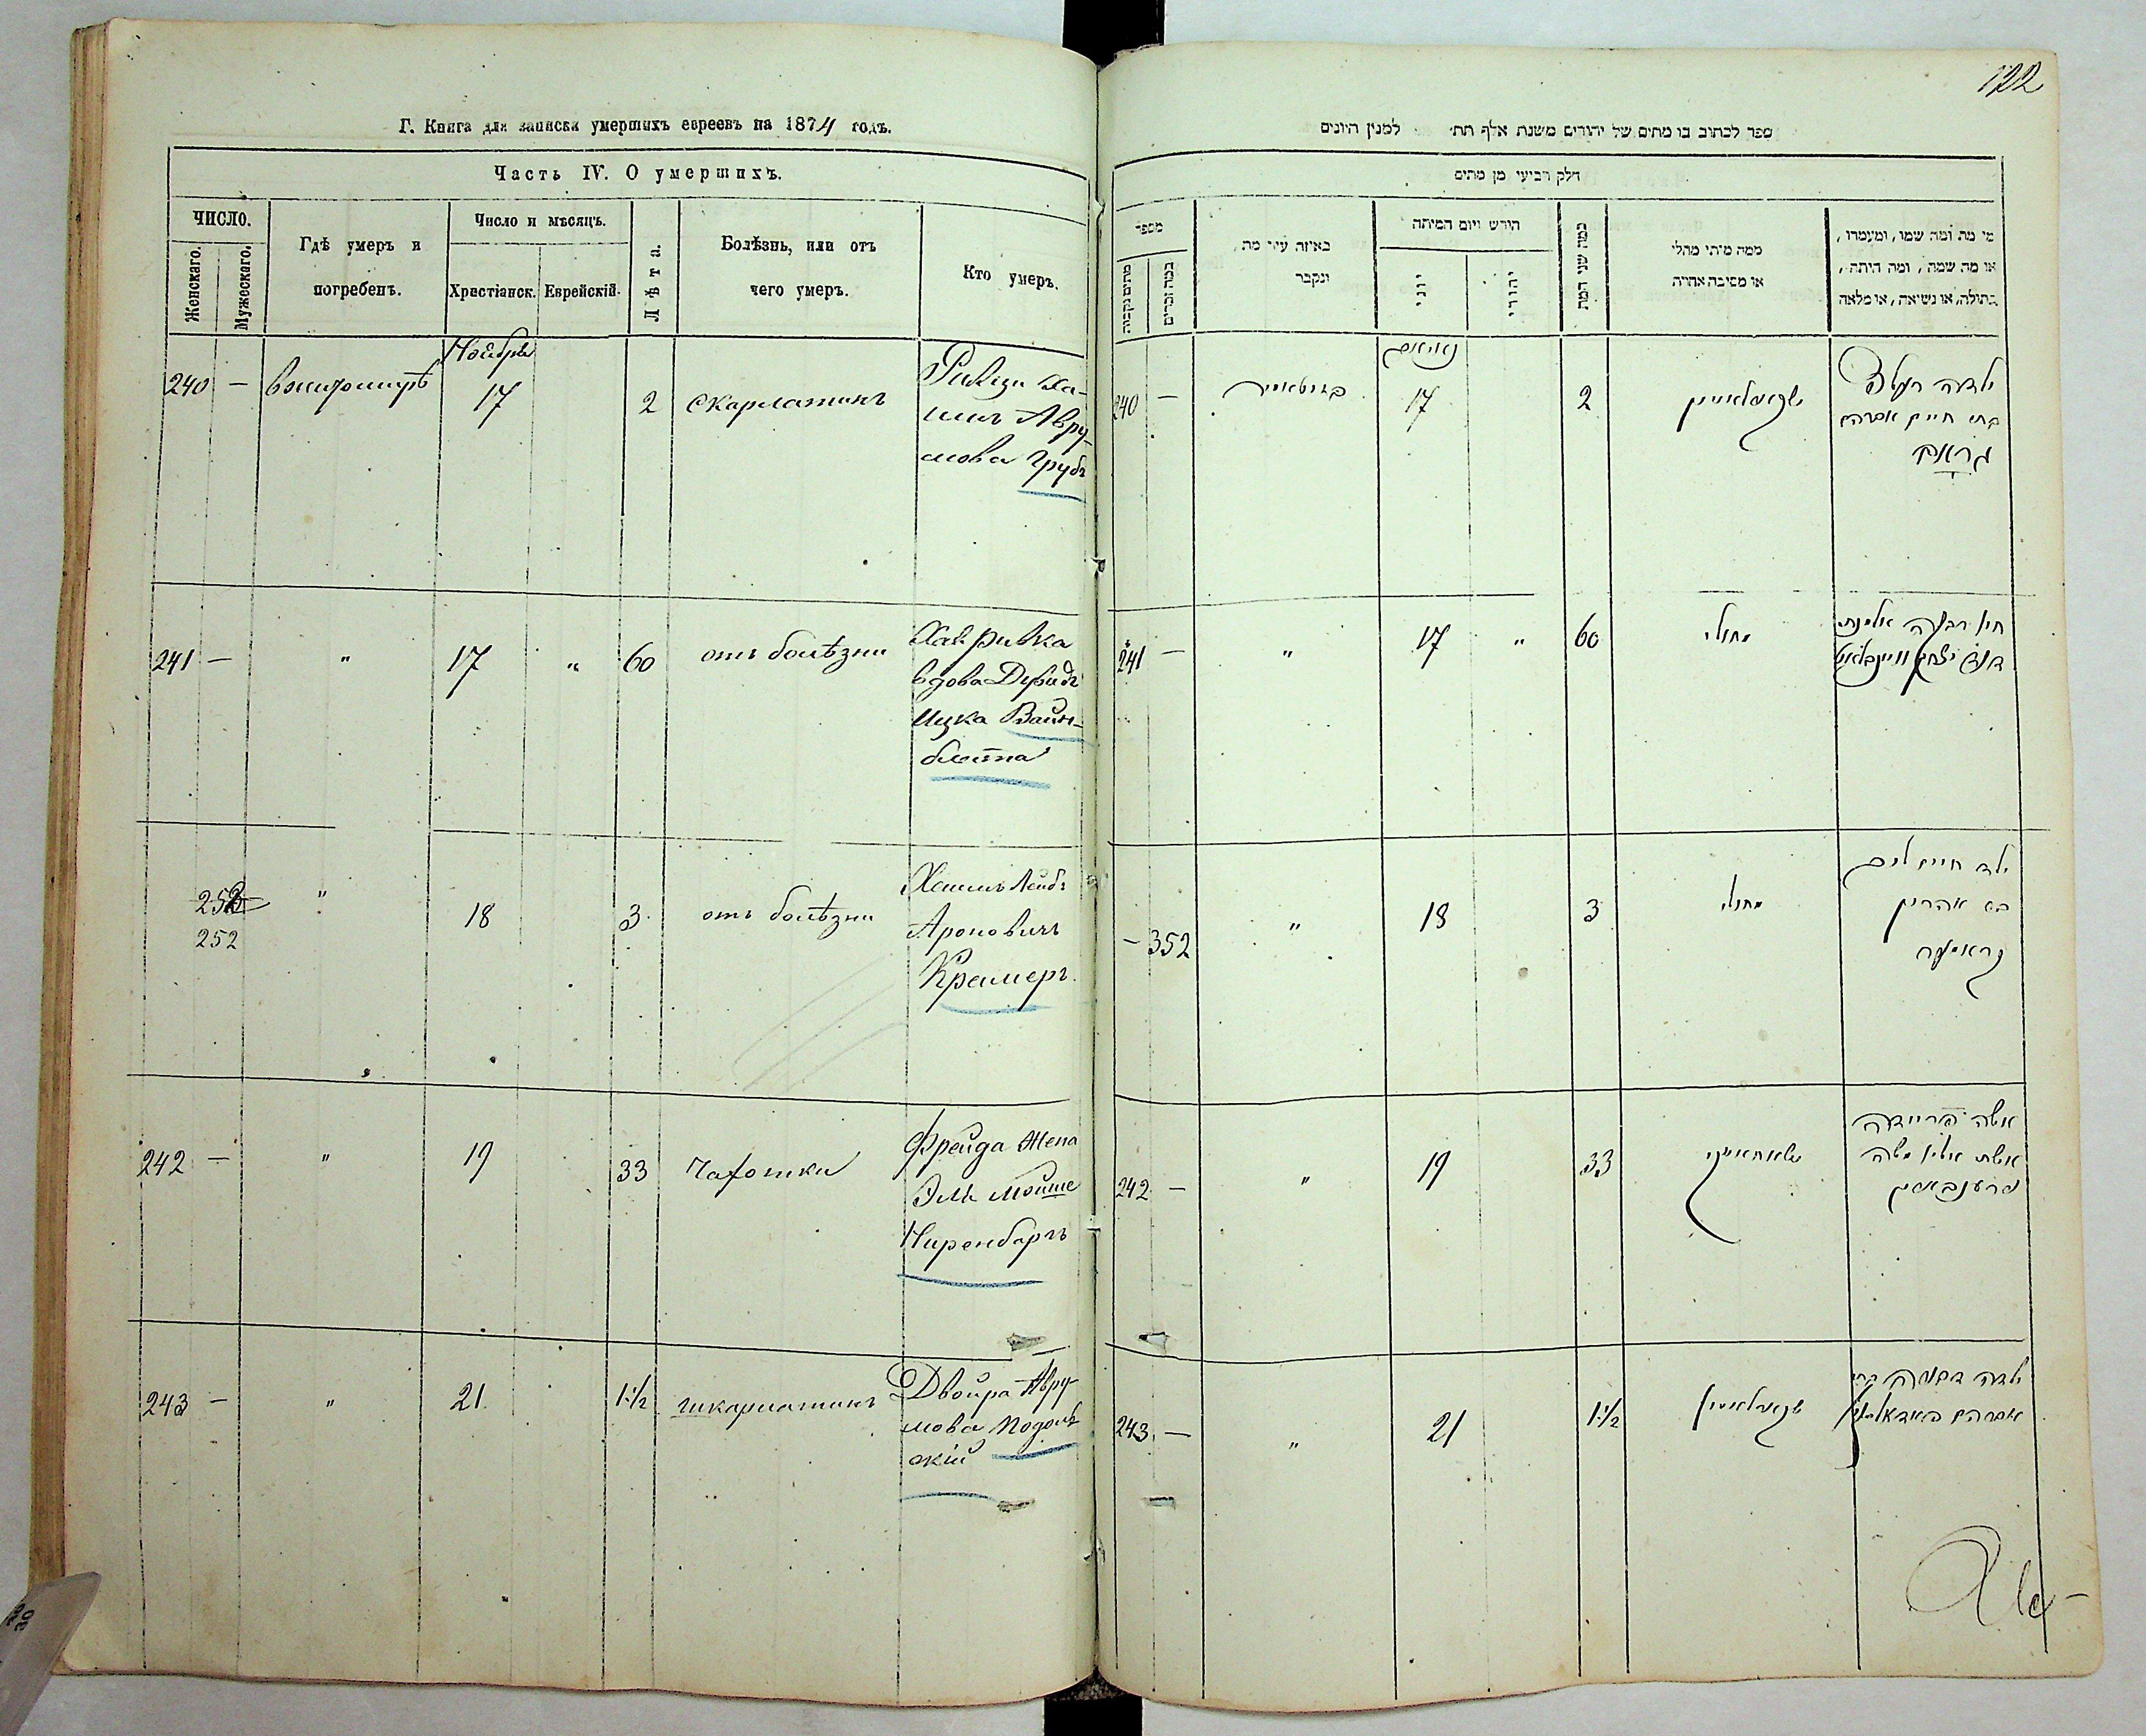 Г. Книга для записки умершихъ евреевъ на 1874 годъ.
Часть IV. О умершихъ.
ЧИСЛО.
Женскаго.
Мужескаго.
Гдѣ умеръ и
погребенъ.
Число и мѣсяцъ.
Христіанск.
Еврейскій.
Лѣта.
Болѣзнь, или отъ
чего умеръ.
Кто умеръ.
Ноября
240 — вжитомирѣ 17 2 скарлатинъ
Авру-
мова Грубъ
241 — " 17 " 60 отъ болѣзни
Ривка
вдова
Ицка Вайн-
блатта
252 " 18 3 отъ болѣзни
252
Хаимъ Лейбъ
Ароновичъ
Крамеръ
242 — " 19 33 Чахотки
Фрейда жена
Эли Мойше
Ниренбаргъ
243 — " 21 1 1/2 шкарлатинъ
Двойра Авру-
мова Подоль
скій
122
ספר לכתוב בו מתים של יהודים משנת אלף תת׳ למנין היונים
חלק רביעי מן מתים
מספר
מתים נקבות
כמה זכרים
באיזה עיר מת
ונקבר
חודש ויום המיתה
יוני
יהודי
כמה שני המת
ממה מיתי מחלי
או מסיבה אחרת
מי מת ומה שמו, ומעמדו,
או מה שמה, ומה היתה,
בתולה, או נשיאה, או מלאה
240 — 17 2
ילדה
בת חיים אברהם
גראב
241 — " 17 " 60 מחולי
352 — " 18 3 מחולי
ילד חיים ליב
בן אהרן
קראמער
242 — " 19 33
אשה פריידה
אשת אלי משה
נירענבארג
243 — " 21 1 1/2
ילדה דבורה בת
אברהם